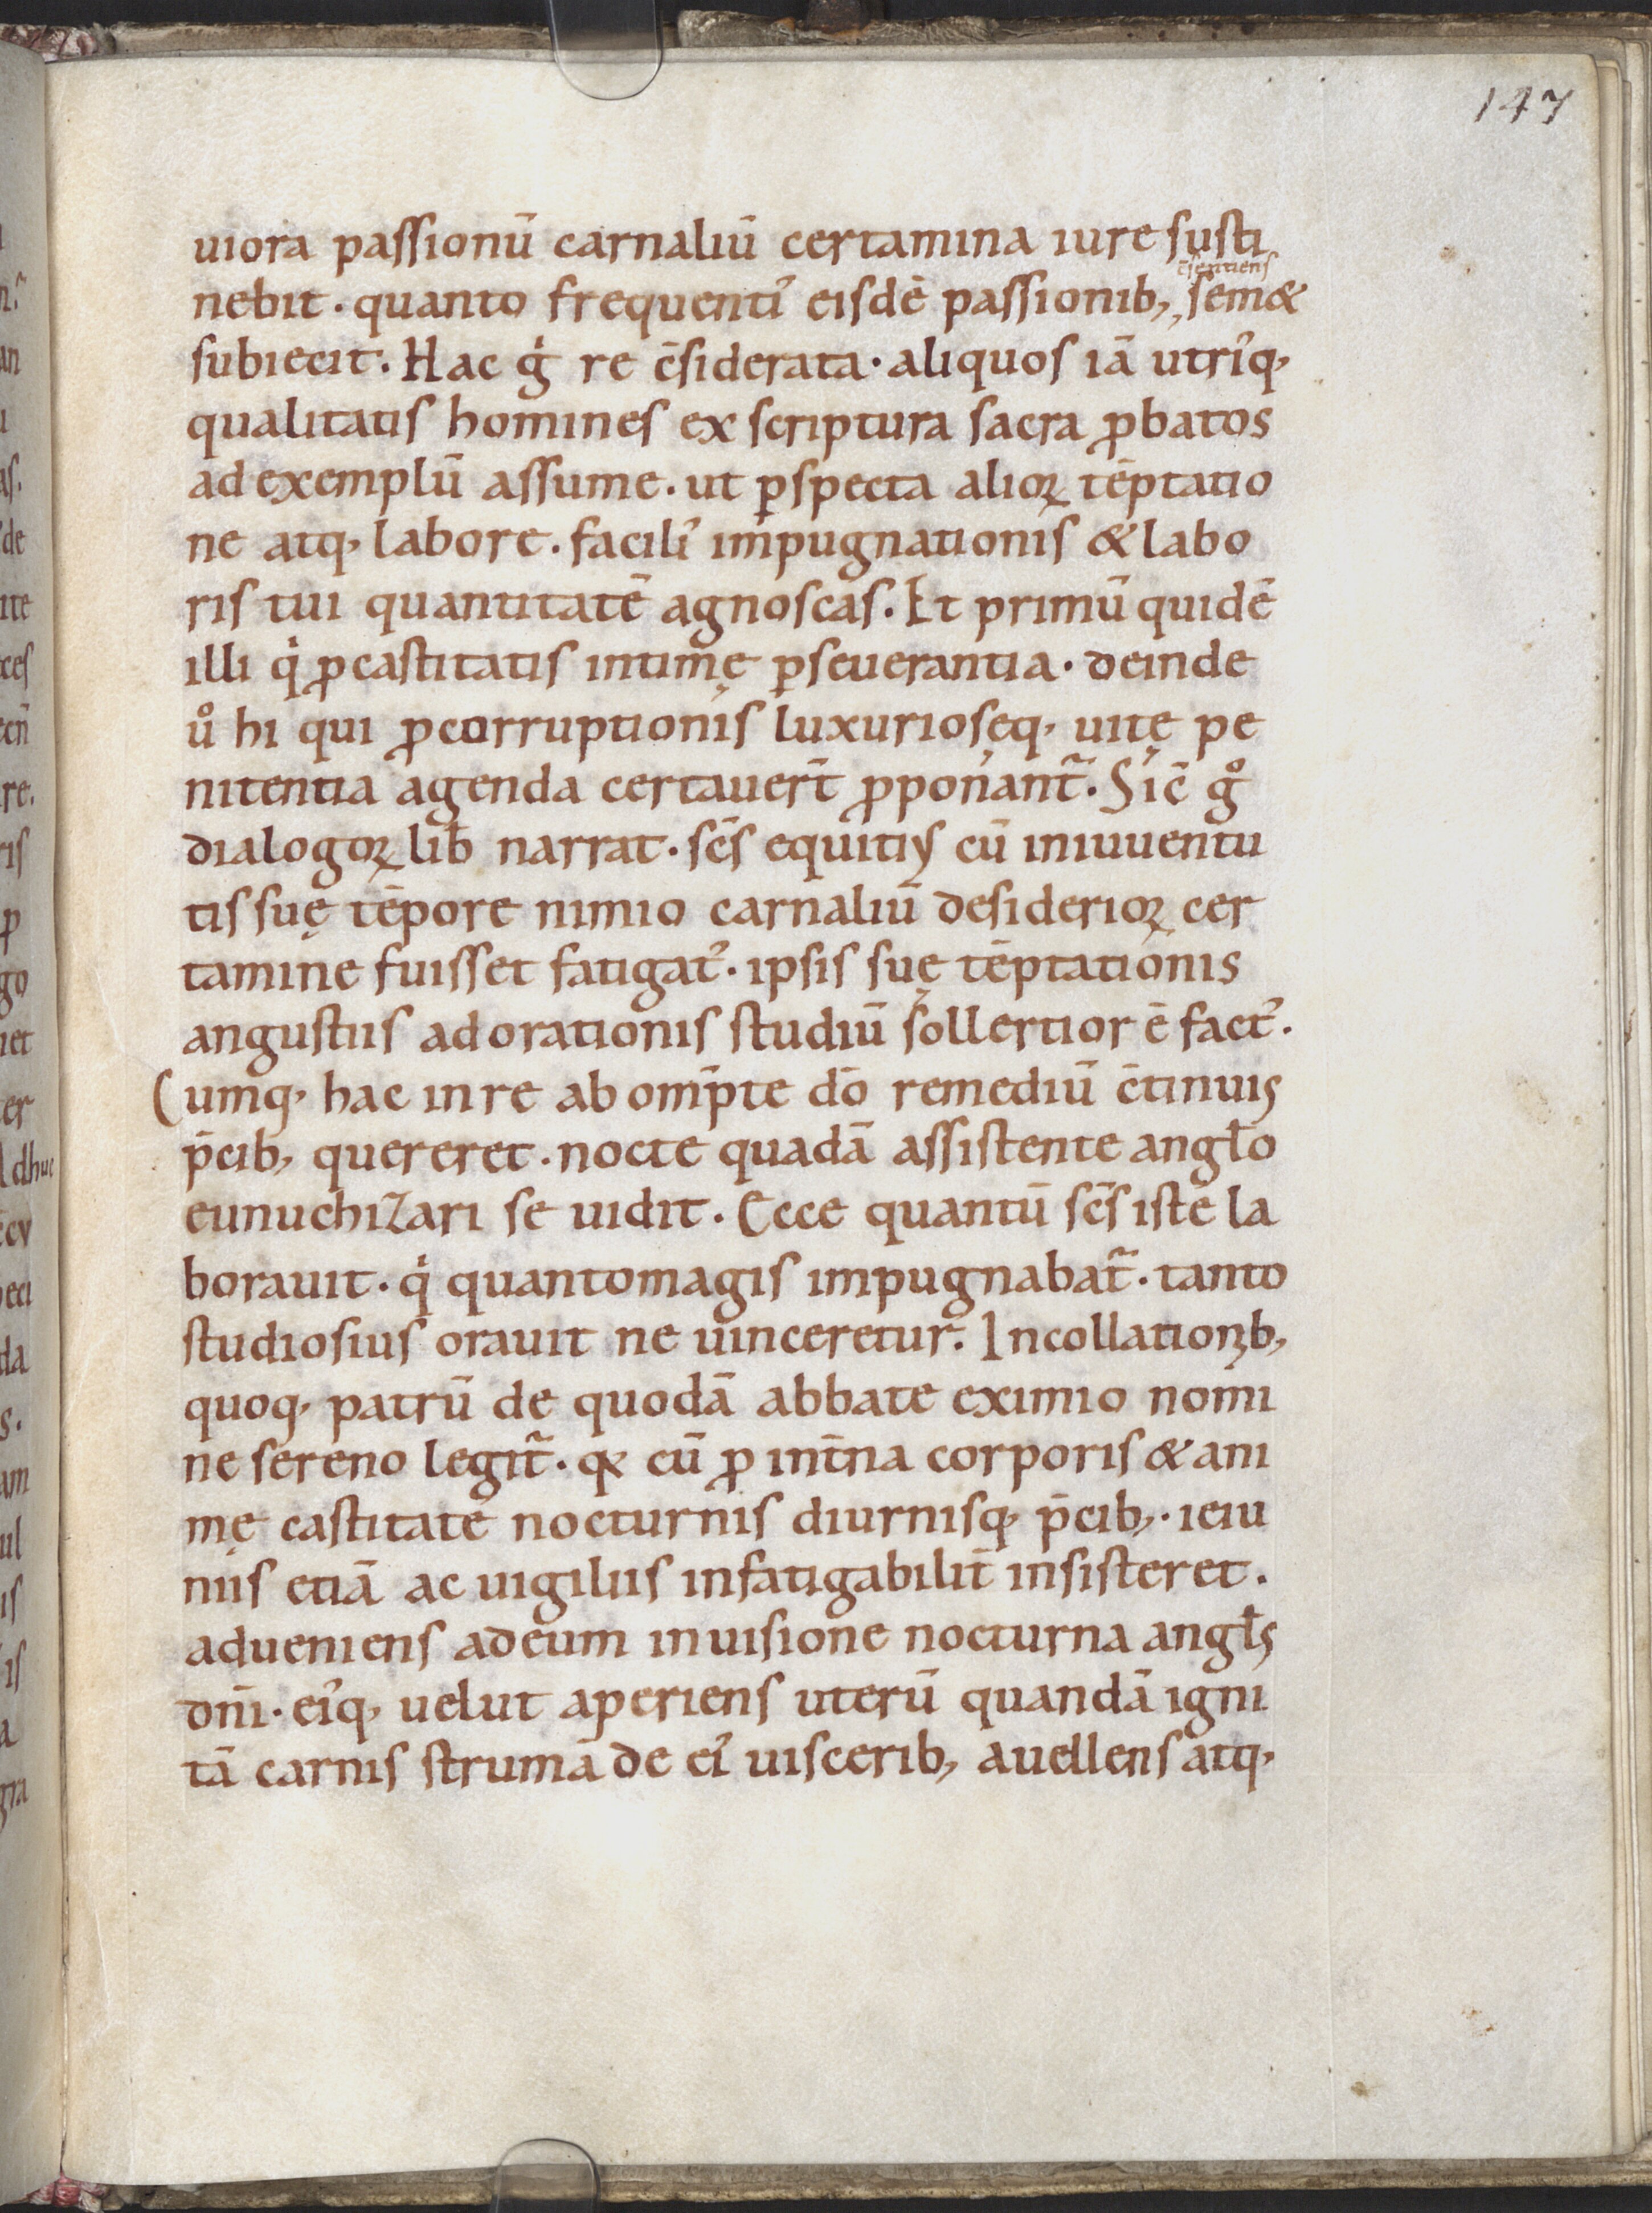 147
uiora passionū carnaliū certamina iure susti
c̄sentiens
nebit. quanto frequenti᷒ eisdē passionib; sem&
subiecit. Hac gͥ re c̄siderata. aliquos iā utri᷒q;
qualitatis homines ex scriptura sacra ꝓbatos
ad exemplū assume. ut ꝑspecta alioꝝ tēptatio
ne atq; labore. facili᷒ impugnationis & labo
ris tui quantitatē agnoscas. Et primū quidē
illi qͥ ꝓ castitatis intimę ꝑseuerantia. deinde
uͦ hi qui ꝓ corruptionis luxurioseq; uitę pe
nitentia agenda certauer̄t ꝓponant᷑. Sic̄ gͦ
dialogoꝝ lib̄ narrat. sc̄s equitiꝰ cū in iuuentu
tis suę tēpore nimio carnaliū desiderioꝝ cer
tamine fuisset fatigat᷒. ipsis suę tēptationis
angustiis ad orationis studiū sollertior ē fact᷒.
Cumq; hac in re ab omp̄te dō remediū c̄tinuis
p̄cib; quereret. nocte quadā assistente angl̄o
eunuchizari se uidit. Ecce quantū sc̄s iste la
borauit. qͥ quantomagis impugnabat᷑. tanto
studiosius orauit ne uinceretur. In collationib;
quoq; patrū de quodā abbate eximio nomi
ne sereno legit᷑. qđ cū ꝓ int̄na corporis & ani
mę castitate nocturnis diurnisq; p̄cib;. ieiu
niis etiā ac uigiliis infatigabilit̄ insisteret.
adueniens ad eum in uisione nocturna angl̄s
dn̄i. ei᷒q; uelut aperiens uterū quandā igni
tā carnis strumā de ei᷒ uiscerib; auellens atq;